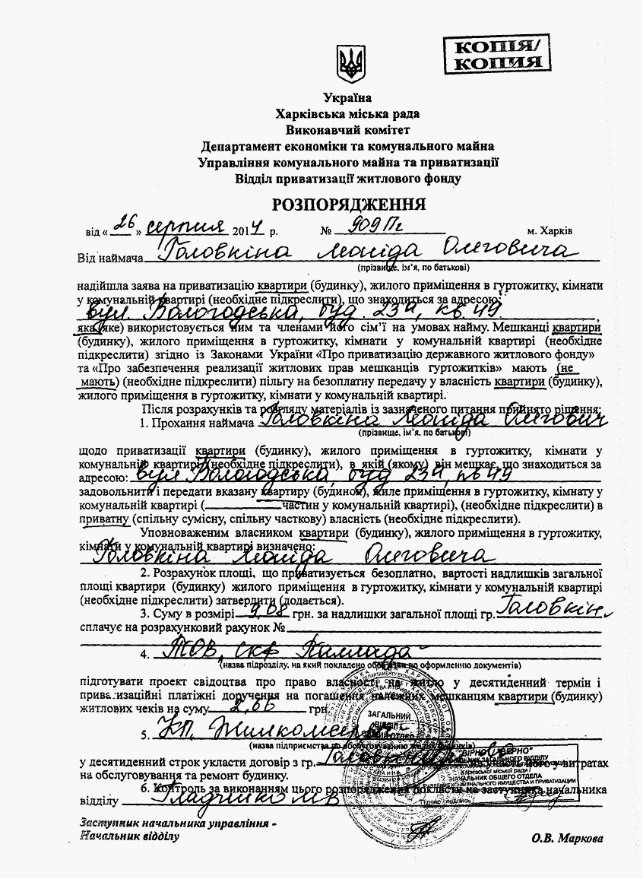 КОПІЯ/
КОПИЯ
Україна
Харківська міська рада
Виконавчий комітет
Департамент економіки та комунального майна
Управління комунального майна та приватизації
Відділ приватизації житлового фонду
РОЗПОРЯДЖЕННЯ
від « 26 » серпня 2014 р. № 909 м. Харків
Від наймача Головкіна Леоніда Олеговича
(прізвище, ім’я, по батькові)
надійшла заява на приватизацію квартири (будинку), жилого приміщення в гуртожитку, кімнати
у комунальній квартирі (необхідне підкреслити), що знаходиться за адресою:
вул. Вологодська, буд. 23 , кв. 49.
яка (яке) використовується ним та членами його сім’ї на умовах найму. Мешканці квартири
(будинку), жилого приміщення в гуртожитку, кімнати у комунальній квартирі (необхідне
підкреслити) згідно із Законами України «Про приватизацію державного житлового фонду»
та «Про забезпечення реалізації житлових прав мешканців гуртожитків» мають (не
мають) (необхідне підкреслити) пільгу на безоплатну передачу у власність квартири (будинку),
жилого приміщення в гуртожитку, кімнати у комунальній квартирі.
Після розрахунків та розгляду матеріалів із зазначеного питання прийнято рішення:
1. Прохання наймача Головкіна Леоніда Олегович
(прізвище, ім’я, по батькові)
щодо приватизації квартири (будинку), жилого приміщення в гуртожитку, кімнати у
комунальній квартирі (необхідне підкреслити), в якій (якому) він мешкає, що знаходиться за
адресою: вул. Вологодська, буд 23 , кв 49
задовольнити і передати вказану квартиру (будинок), жиле приміщення в гуртожитку, кімнату у
комунальній квартирі ( частин у комунальній квартирі), (необхідне підкреслити) в
приватну (спільну сумісну, спільну часткову) власність (необхідне підкреслити).
Уповноваженим власником квартири (будинку), жилого приміщення в гуртожитку,
кімнати у комунальній квартирі визначено:
Головкіна Леоніда Олеговича
2. Розрахунок площі, що приватизується безоплатно, вартості надлишків загальної
площі квартири (будинку) жилого приміщення в гуртожитку, кімнати у комунальній квартирі
(необхідне підкреслити) затвердити (додається).
3. Суму в розмірі 9,08 грн. за надлишки загальної площі гр. Головкін
сплачує на розрахунковий рахунок №
4. ТОВ СКФ Паллада
(назва підрозділу, на який покладено обов’язки по оформленню документів)
підготувати проект свідоцтва про право власності на житло у десятиденний термін і
приватизаційні платіжні доручення на погашення належних мешканцям квартири (будинку)
житлових чеків на суму грн.
5. КП Жилкомсервіс
(назва підприємства по обслуговуванню жилих будинків)
у десятиденний строк укласти договір з гр. участь його у витратах
на обслуговування та ремонт будинку.
6. Контроль за виконанням цього розпорядження покласти на заступника начальника
відділу
ЗАГАЛЬНИЙ
ВІДДІЛ
Заступник начальника управління -
Начальник відділу
О.В. Маркова